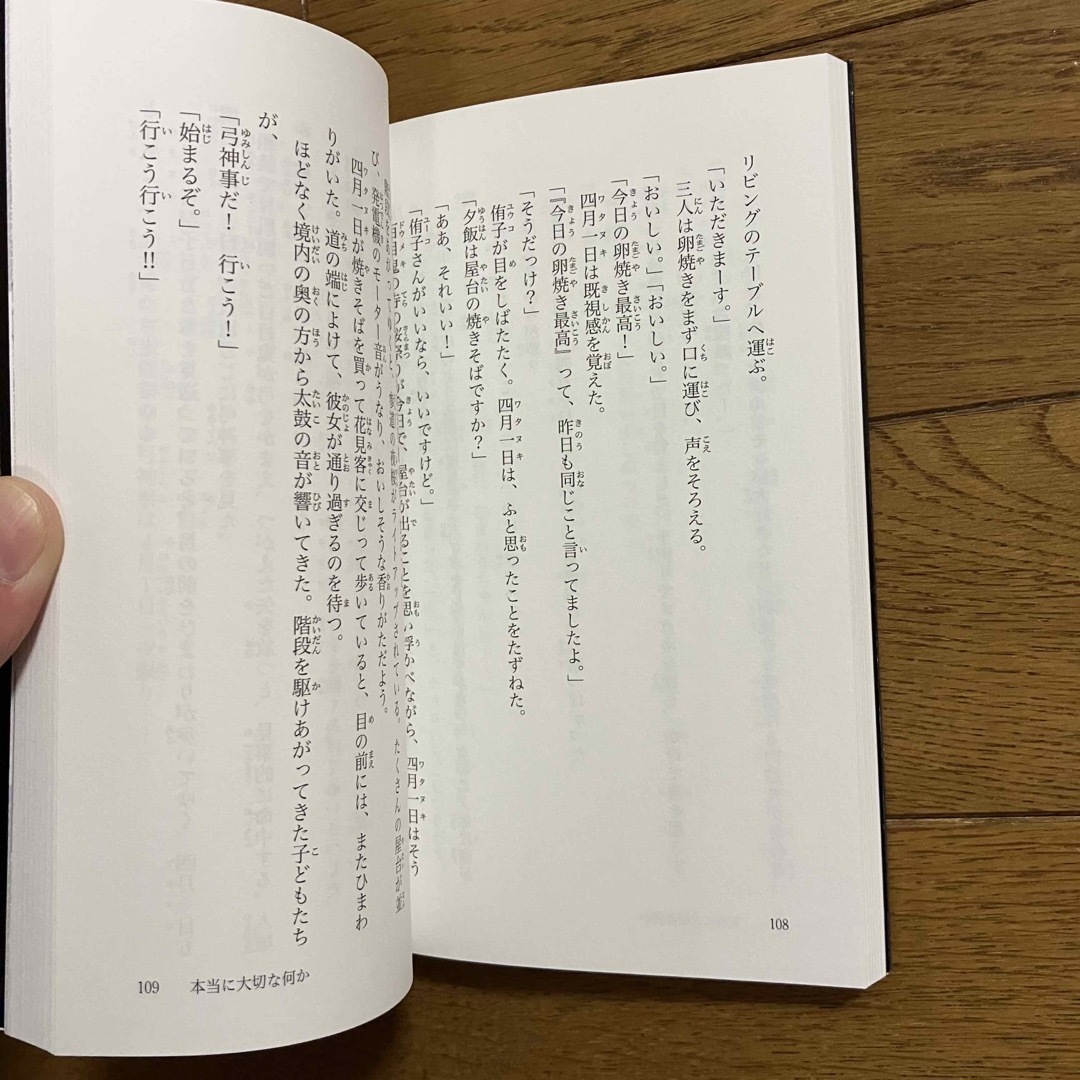 リビングのテーブルへ運ぶ。
「いただきまーす。」
三人は卵焼きをまず口に運び、声をそろえる。
「おいしい。」「おいしい。」
「今日の卵焼き最高！」
四月一日は既視感を覚えた。
「『今日の卵焼き最高』って、昨日も同じこと言ってましたよ。」
「そうだっけ？」
侑子が目をしばたたく。四月一日は、ふと思ったことをたずねた。
「夕飯は屋台の焼きそばですか？」
「ああ、それいい！」
「侑子さんがいいなら、いいですけど。」
百目鬼の寺の桜祭りが今日で、屋台が出ることを思い浮かべながら、四月一日はそう
ライトアップされている。たくさんの屋台が並
び、発電機のモーター音がうなり、おいしそうな香りがただよう。
四月一日が焼きそばを買って花見客に交じって歩いていると、目の前には、またひまわ
りがいた。道の端によけて、彼女が通り過ぎるのを待つ。
ほどなく境内の奥の方から太鼓の音が響いてきた。階段を駆けあがってきた子どもたち
が、
「弓神事だ！　行こう！」
「始まるぞ。」
「行こう行こう!!」
108
109　本当に大切な何か